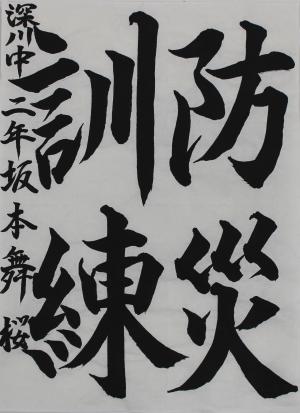 防災
訓練
深川中二年坂本舞桜